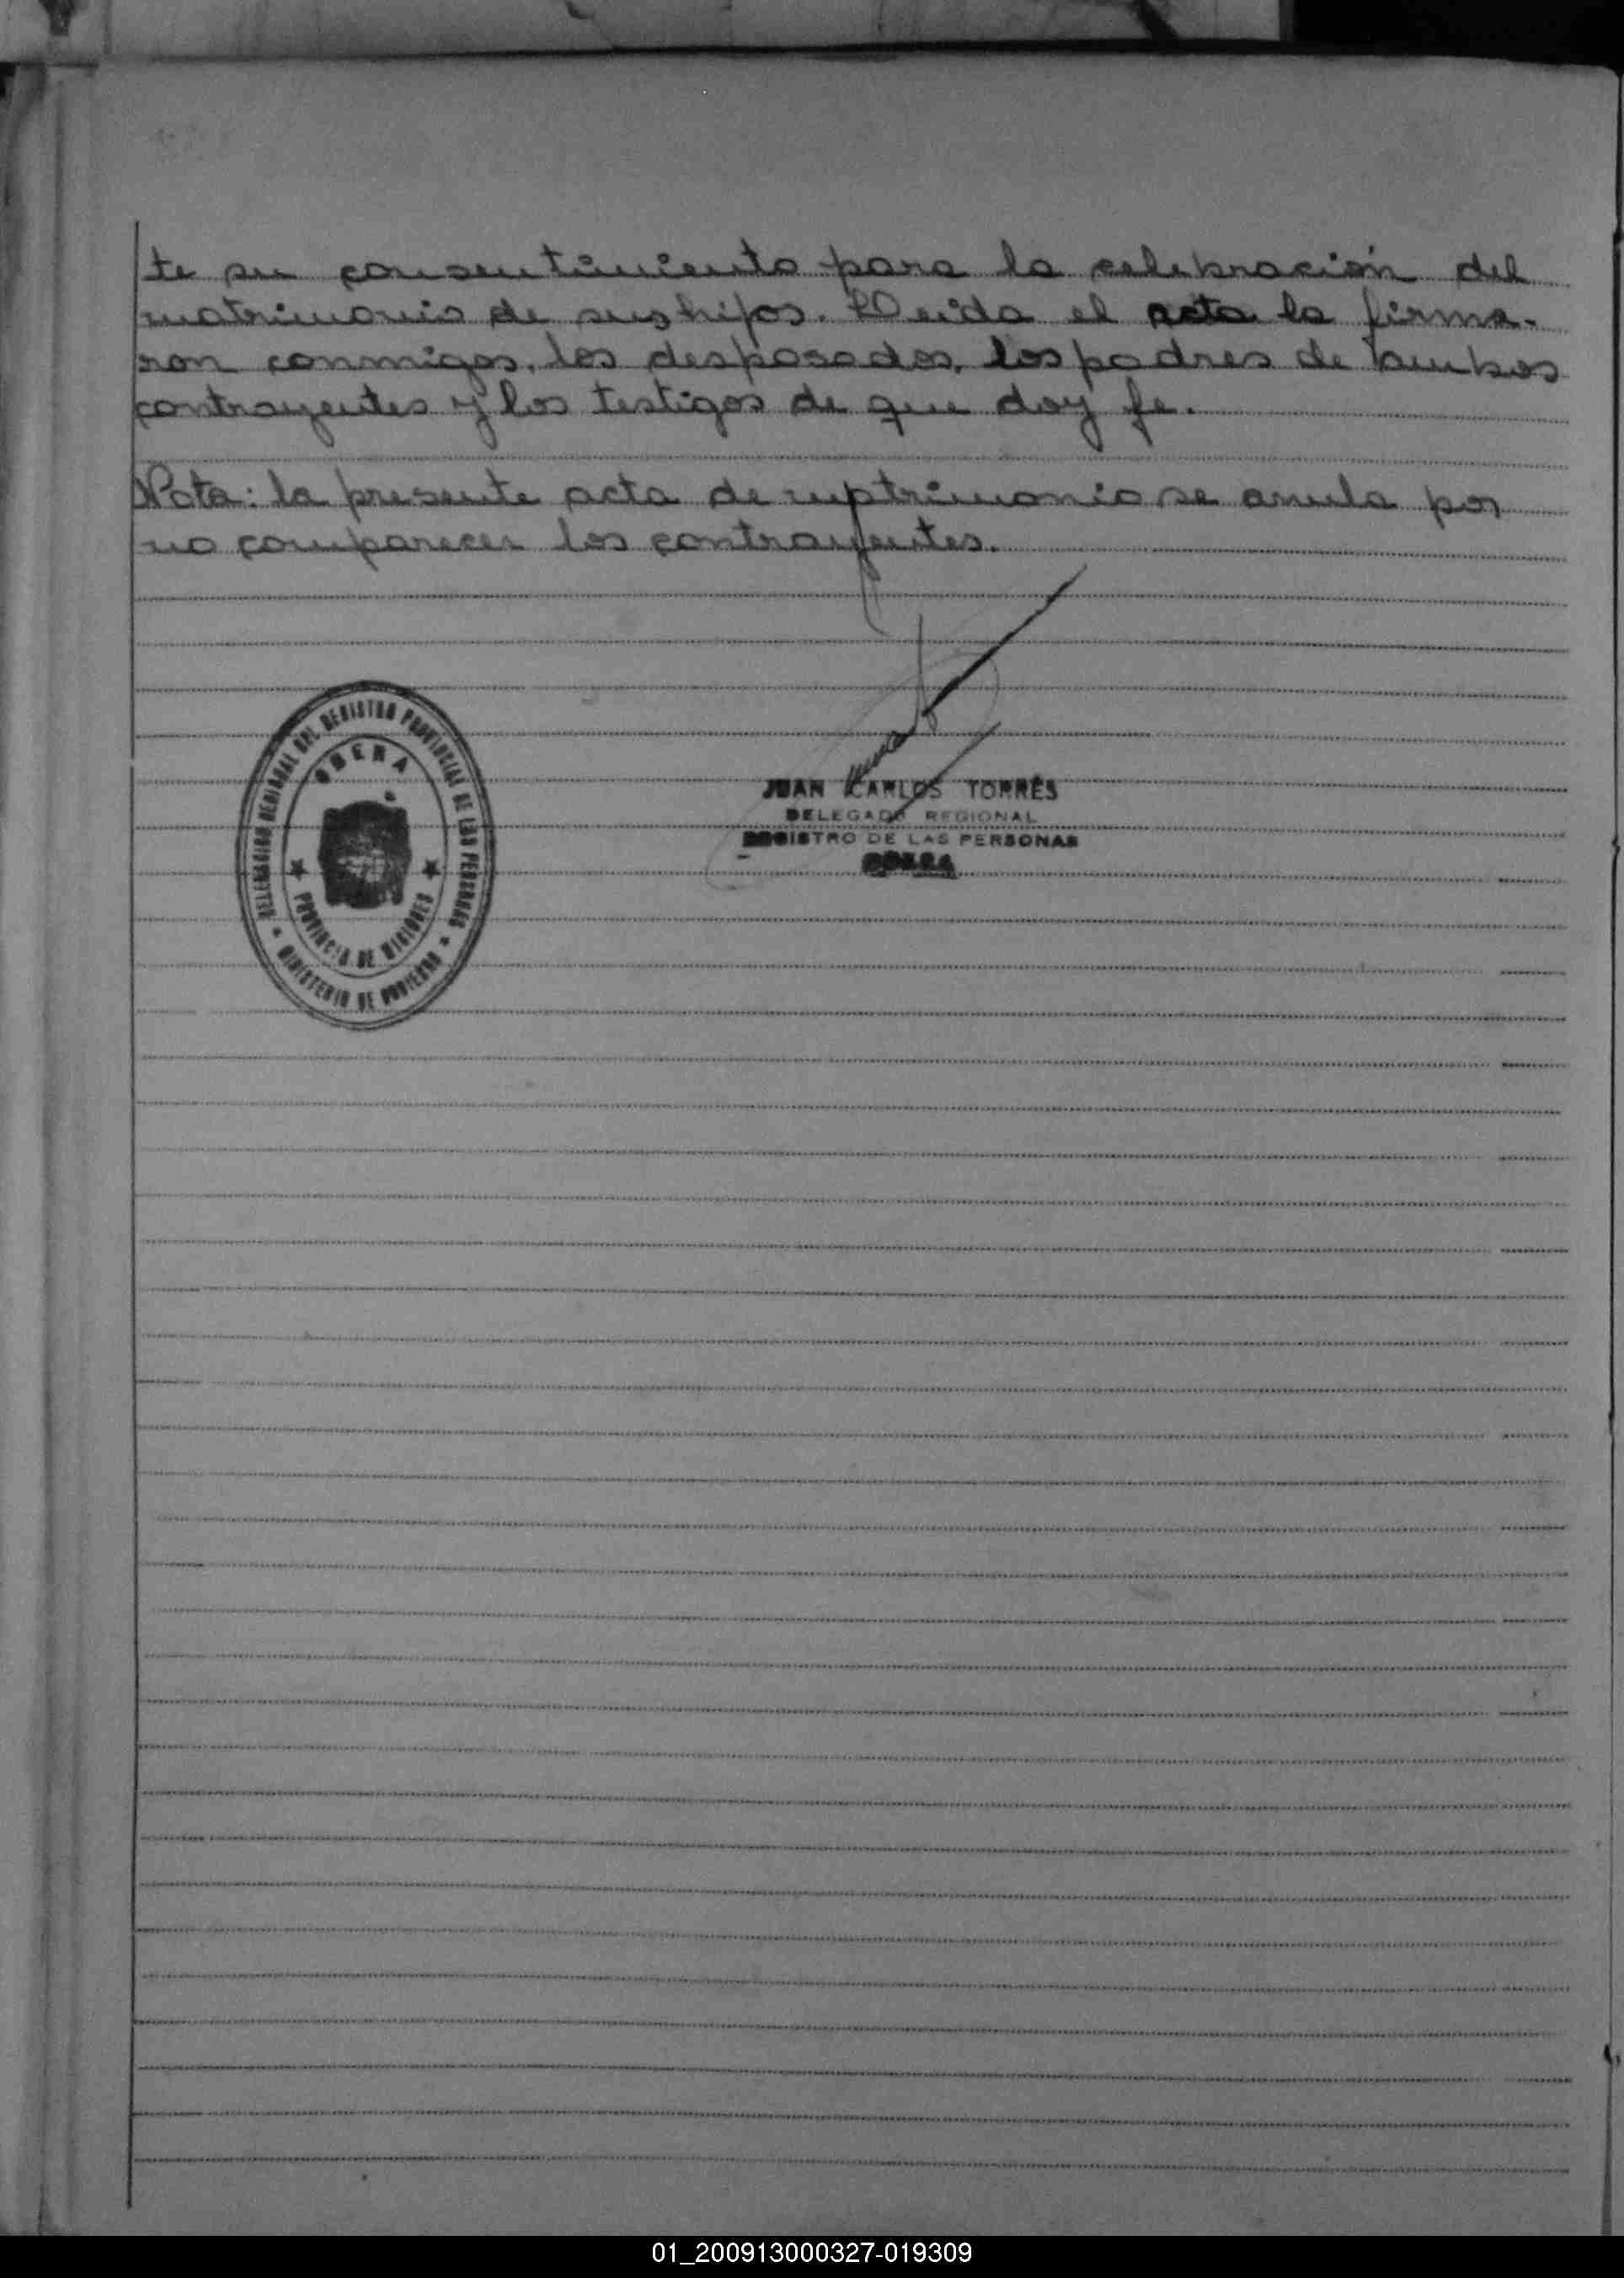 te su consentimiento para la celebración del
matrimonio de sus hijos. Leida el acta la firma-
ron conmigos, los desposados, los padres de ambos
contrayentes y los testigos de que doy fe.
Nota: la presente acta de matrimonio se anula por
no comparecer los contrayentes.
DELEGACION REGIONAL DEL REGISTRO PROVINCIAL DE LAS PERSONAS
OBERA
PROVINCIA DE MISIONES
MINISTERIO DE GOBIERNO
JUAN CARLOS TORRES
DELEGADO REGIONAL
REGISTRO DE LAS PERSONAS
OBERA
01_200913000327-019309